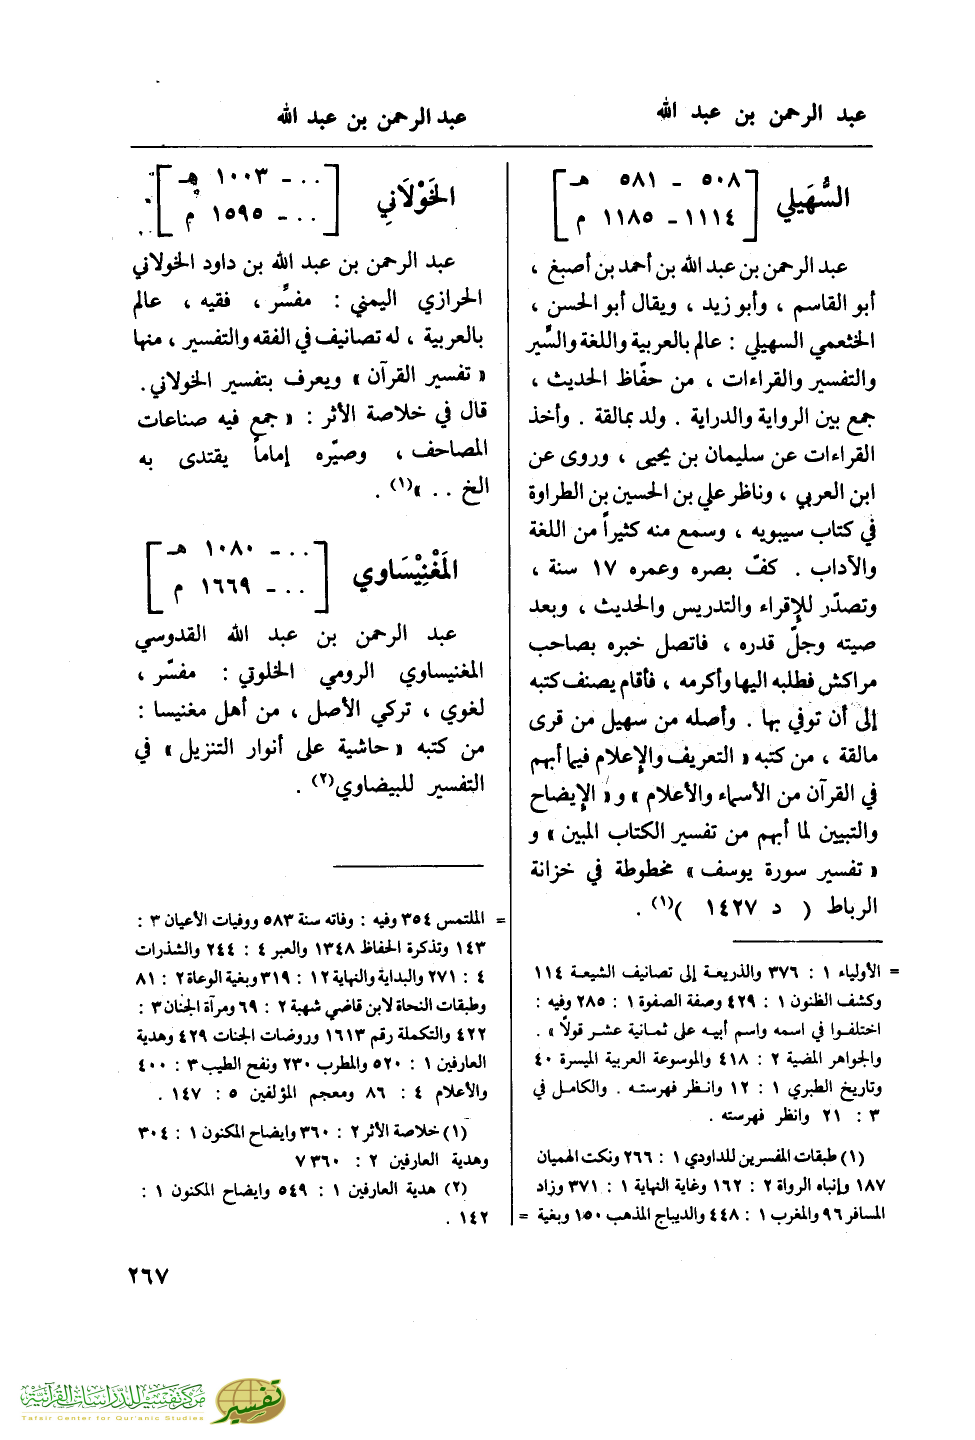 عبد الرحمن بن عبد الله
عبد الرحمن بن عبد الله
السُّهَيلي
٥٠٨ - ٥٨١ هـ
١١١٤ - ١١٨٥ م
عبد الرحمن بن عبد الله بن أحمد بن أصبغ ،
أبو القاسم ، وأبو زيد ، ويقال أبو الحسن ،
الخثعمي السهيلي : عالم بالعربية واللغة والسِّير
والتفسير والقراءات ، من حفّاظ الحديث ،
جمع بين الرواية والدراية . ولد بمالقة . وأخذ
القراءات عن سليمان بن يحيى ، وروى عن
ابن العربي ، وناظر علي بن الحسين بن الطراوة
في كتاب سيبويه ، وسمع منه كثيراً من اللغة
والآداب . كفّ بصره وعمره ١٧ سنة ،
وتصدّر للإقراء والتدريس والحديث ، وبعد
صيته وجلّ قدره ، فاتصل خبره بصاحب
مراكش فطلبه اليها وأكرمه ، فأقام يصنف كتبه
إلى أن توفي بها . وأصله من سهيل من قرى
مالقة ، من كتبه « التعريف والإعلام فيما أبهم
في القرآن من الأسماء والأعلام » و « الإيضاح
والتبيين لما أبهم من تفسير الكتاب المبين » و
« تفسير سورة يوسف » مخطوطة في خزانة
الرباط ( د ١٤٢٧ )(١) .
= الأولياء ١ : ٣٧٦ والذريعة إلى تصانيف الشيعة ١١٤
وكشف الظنون ١ : ٤٢٩ وصفة الصفوة ١ : ٢٨٥ وفيه :
اختلفوا في اسمه واسم أبيه على ثمانية عشر قولاً » .
والجواهر المضية ٢ : ٤١٨ والموسوعة العربية الميسرة ٤٠
وتاريخ الطبري ١ : ١٢ وانظر فهرسته . والكامل في
٣ : ٢١ وانظر فهرسته .
(١) طبقات المفسرين للداودي ١ : ٢٦٦ ونكت الهميان
١٨٧ وإنباه الرواة ٢ : ١٦٢ وغاية النهاية ١ : ٣٧١ وزاد
المسافر ٩٦ والمغرب ١ : ٤٤٨ والديباج المذهب ١٥٠ وبغية =
الخَوْلاَني
... - ١٠٠٣ هـ
... - ١٥٩٥ م
عبد الرحمن بن عبد الله بن داود الخولاني
الحرازي اليمني : مفسِّر ، فقيه ، عالم
بالعربية ، له تصانيف في الفقه والتفسير ، منها
« تفسير القرآن » ويعرف بتفسير الخولاني .
قال في خلاصة الأثر : « جمع فيه صناعات
المصاحف ، وصيّره إماماً يقتدى به
الخ .. »(١) .
المَغْنِيْسَاوي
... - ١٠٨٠ هـ
... - ١٦٦٩ م
عبد الرحمن بن عبد الله القدوسي
المغنيساوي الرومي الخلوتي : مفسّر ،
لغوي ، تركي الأصل ، من أهل مغنيسا :
من كتبه « حاشية على أنوار التنزيل » في
التفسير للبيضاوي(٢) .
= الملتمس ٣٥٤ وفيه : وفاته سنة ٥٨٣ ووفيات الأعيان ٣ :
١٤٣ وتذكرة الحفاظ ١٣٤٨ والعبر ٤ : ٢٤٤ والشذرات
٤ : ٢٧١ والبداية والنهاية ١٢ : ٣١٩ وبغية الوعاة ٢ : ٨١
وطبقات النحاة لابن قاضي شهبة ٢ : ٦٩ ومرآة الجنان ٣ :
٤٢٢ والتكملة رقم ١٦١٣ وروضات الجنات ٤٢٩ وهدية
العارفين ١ : ٥٢٠ والمطرب ٢٣٠ ونفح الطيب ٣ : ٤٠٠
والأعلام ٤ : ٨٦ ومعجم المؤلفين ٥ : ١٤٧ .
(١) خلاصة الأثر ٢ : ٣٦٠ وايضاح المكنون ١ : ٣٠٤
وهدية العارفين ٢ : ٣٦٠ ٧
(٢) هدية العارفين ١ : ٥٤٩ وايضاح المكنون ١ :
١٤٢ .
٢٦٧
مركز تفسير للدراسات القرآنية
Tafsir Center for Qur'anic Studies
تفسير